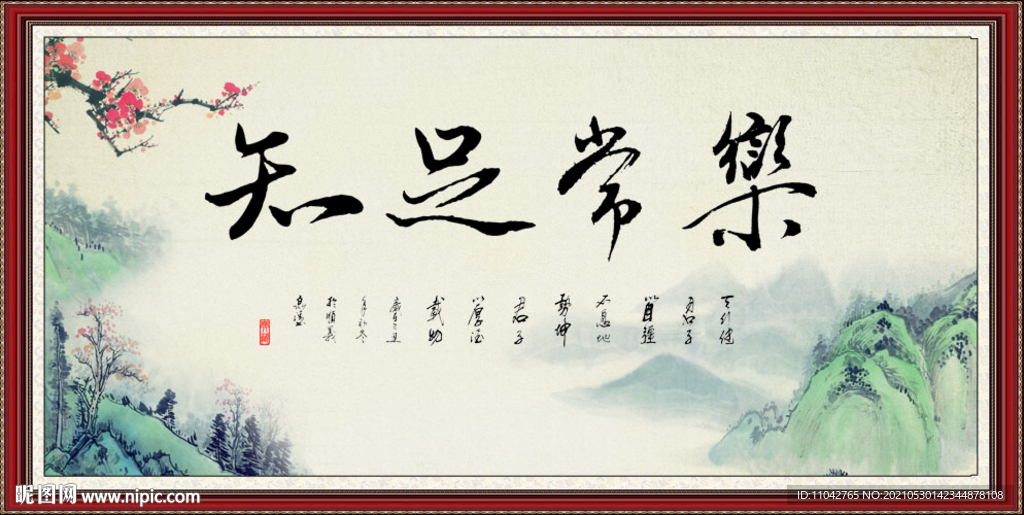 知足常樂
天行健
君子
以自强
不息地
勢坤
君子
以厚德
載物
於順義
昵图网 www.nipic.com
ID:11042765 NO:20210530142344878108